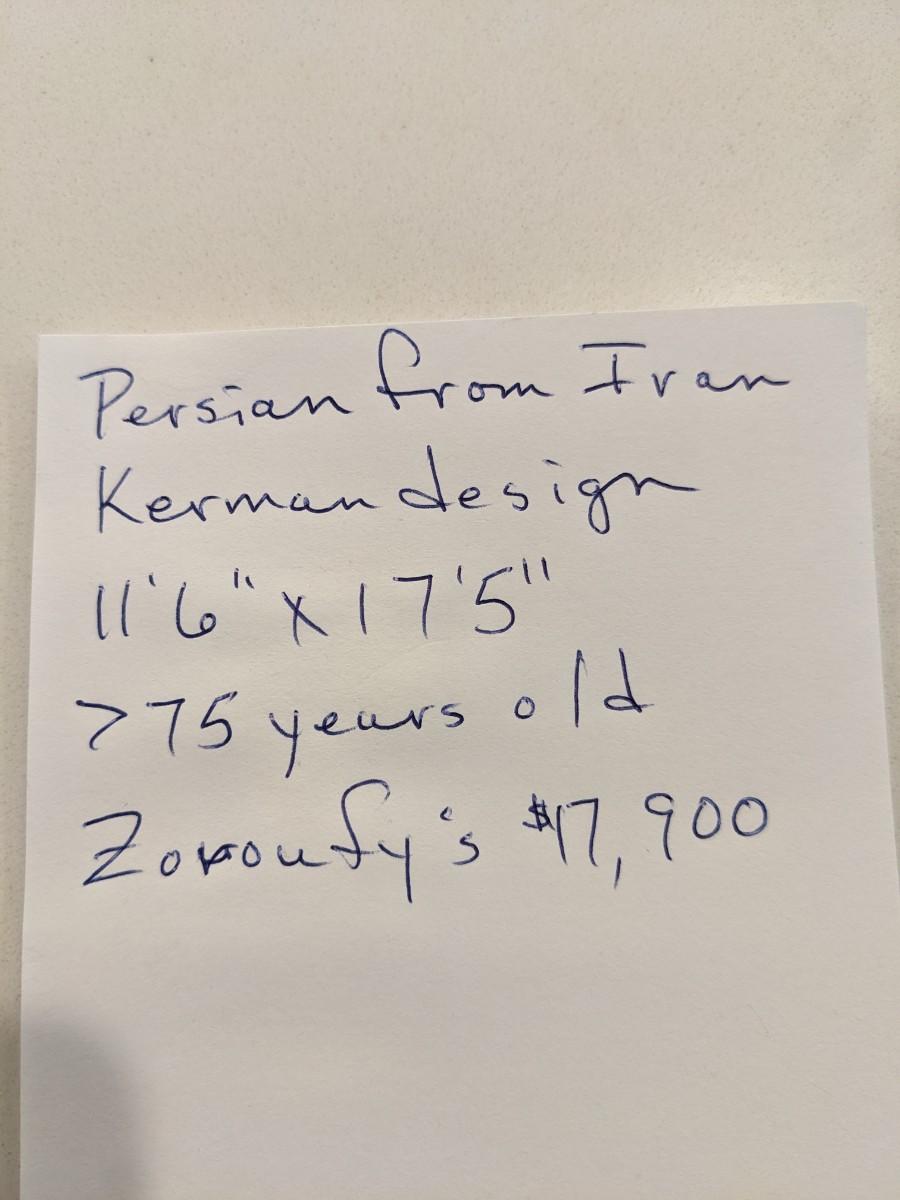 Persian from Iran
Kerman design
11'6" x 17'5"
>75 years old
Zoroufy's $17,900